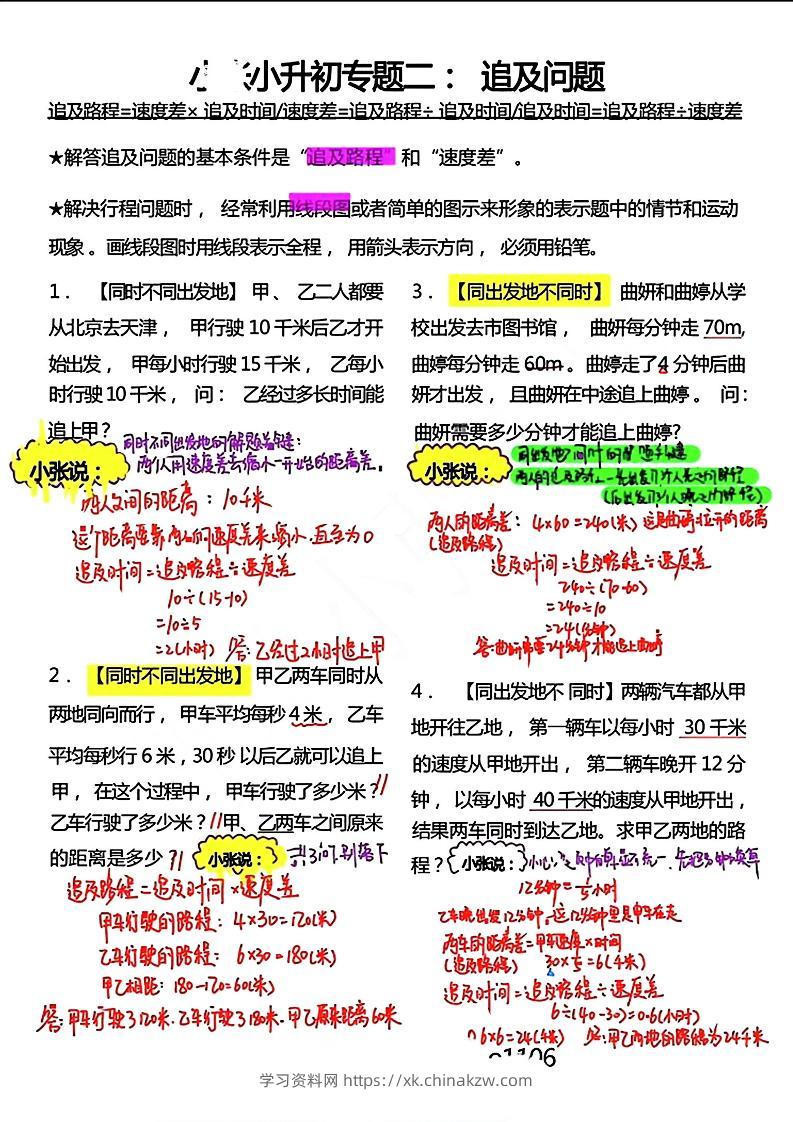 小升初专题二： 追及问题
追及路程=速度差× 追及时间/速度差=追及路程÷ 追及时间/追及时间=追及路程÷速度差
★解答追及问题的基本条件是“追及路程”和“速度差”。
★解决行程问题时， 经常利用线段图或者简单的图示来形象的表示题中的情节和运动
现象 。画线段图时用线段表示全程， 用箭头表示方向， 必须用铅笔。
1． 【同时不同出发地】 甲 、 乙二人都要
从北京去天津， 甲行驶 10 千米后乙才开
始出发， 甲每小时行驶 15 千米， 乙每小
时行驶 10 千米， 问： 乙经过多长时间能
追上甲？
同时不同出发地的解题关键：
两人用速度差去缩小一开始的距离差。
小张说：
两人之间的距离：10千米
这个距离要靠两人间的速度差来缩小，直至为0
追及时间=追及路程÷速度差
10÷(15-10)
=10÷5
=2(小时) 答：乙经过2小时追上甲
2． 【同时不同出发地】 甲乙两车同时从
两地同向而行， 甲车平均每秒 4 米， 乙车
平均每秒行 6 米，30 秒 以后乙就可以追上
甲， 在这个过程中， 甲车行驶了多少米？
乙车行驶了多少米？甲、乙两车之间原来
的距离是多少？ 小张说： 共3个问，别落下
追及路程=追及时间×速度差
甲车行驶的路程：4×30=120(米)
乙车行驶的路程：6×30=180(米)
甲乙相距：180-120=60(米)
答：甲车行驶了120米，乙车行驶了180米，甲乙原来距离60米
3． 【同出发地不同时】 曲妍和曲婷从学
校出发去市图书馆， 曲妍每分钟走 70m,
曲婷每分钟走 60m 。曲婷走了4 分钟后曲
妍才出发， 且曲妍在中途追上曲婷 。 问：
曲妍需要多少分钟才能追上曲婷?
小张说：
两人的距离差：4×60=240(米) 这是曲婷拉开的距离
(追及路程)
追及时间=追及路程÷速度差
240÷(70-60)
=240÷10
=24(分钟)
答：曲妍需要24分钟才能追上曲婷
4． 【同出发地不 同时】两辆汽车都从甲
地开往乙地， 第一辆车以每小时 30 千米
的速度从甲地开出， 第二辆车晚开 12 分
钟， 以每小时 40 千米的速度从甲地开出，
结果两车同时到达乙地。求甲乙两地的路
程？ 小张说：
12分钟=1/5小时
乙车晚出发12分钟，这12分钟里是甲车在走
两车的距离差=甲车速度×时间
(追及路程) 30×1/5=6(千米)
追及时间=追及路程÷速度差
6÷(40-30)=0.6(小时)
0.6×6=24(千米) 答：甲乙两地的路程为24千米
学习资料网 https://xk.chinakzw.com